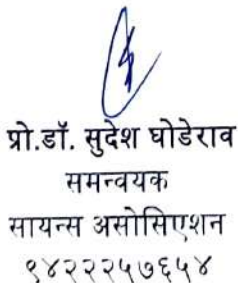 प्रो.डॉ. सुदेश घोडेराव
समन्वयक
सायन्स असोसिएशन
९४२२२५७६५४